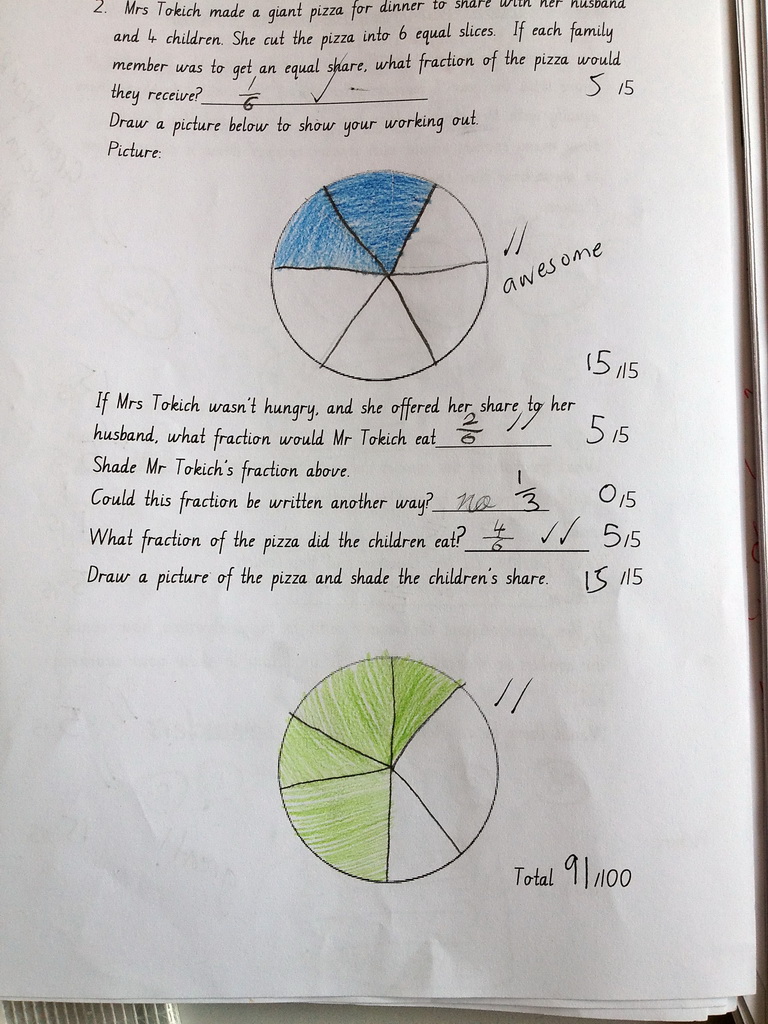 2. Mrs Tokich made a giant pizza for dinner to share with her husband
and 4 children. She cut the pizza into 6 equal slices. If each family
member was to get an equal share, what fraction of the pizza would
they receive? 1/6 ✓ 5/15
Draw a picture below to show your working out.
Picture:
✓✓
awesome
15/15
If Mrs Tokich wasn't hungry, and she offered her share to her
husband, what fraction would Mr Tokich eat 2/6 ✓✓ 5/5
Shade Mr Tokich's fraction above.
Could this fraction be written another way? no 1/3 0/5
What fraction of the pizza did the children eat? 4/6 ✓✓ 5/5
Draw a picture of the pizza and shade the children's share. 15/15
✓✓
Total 91/100